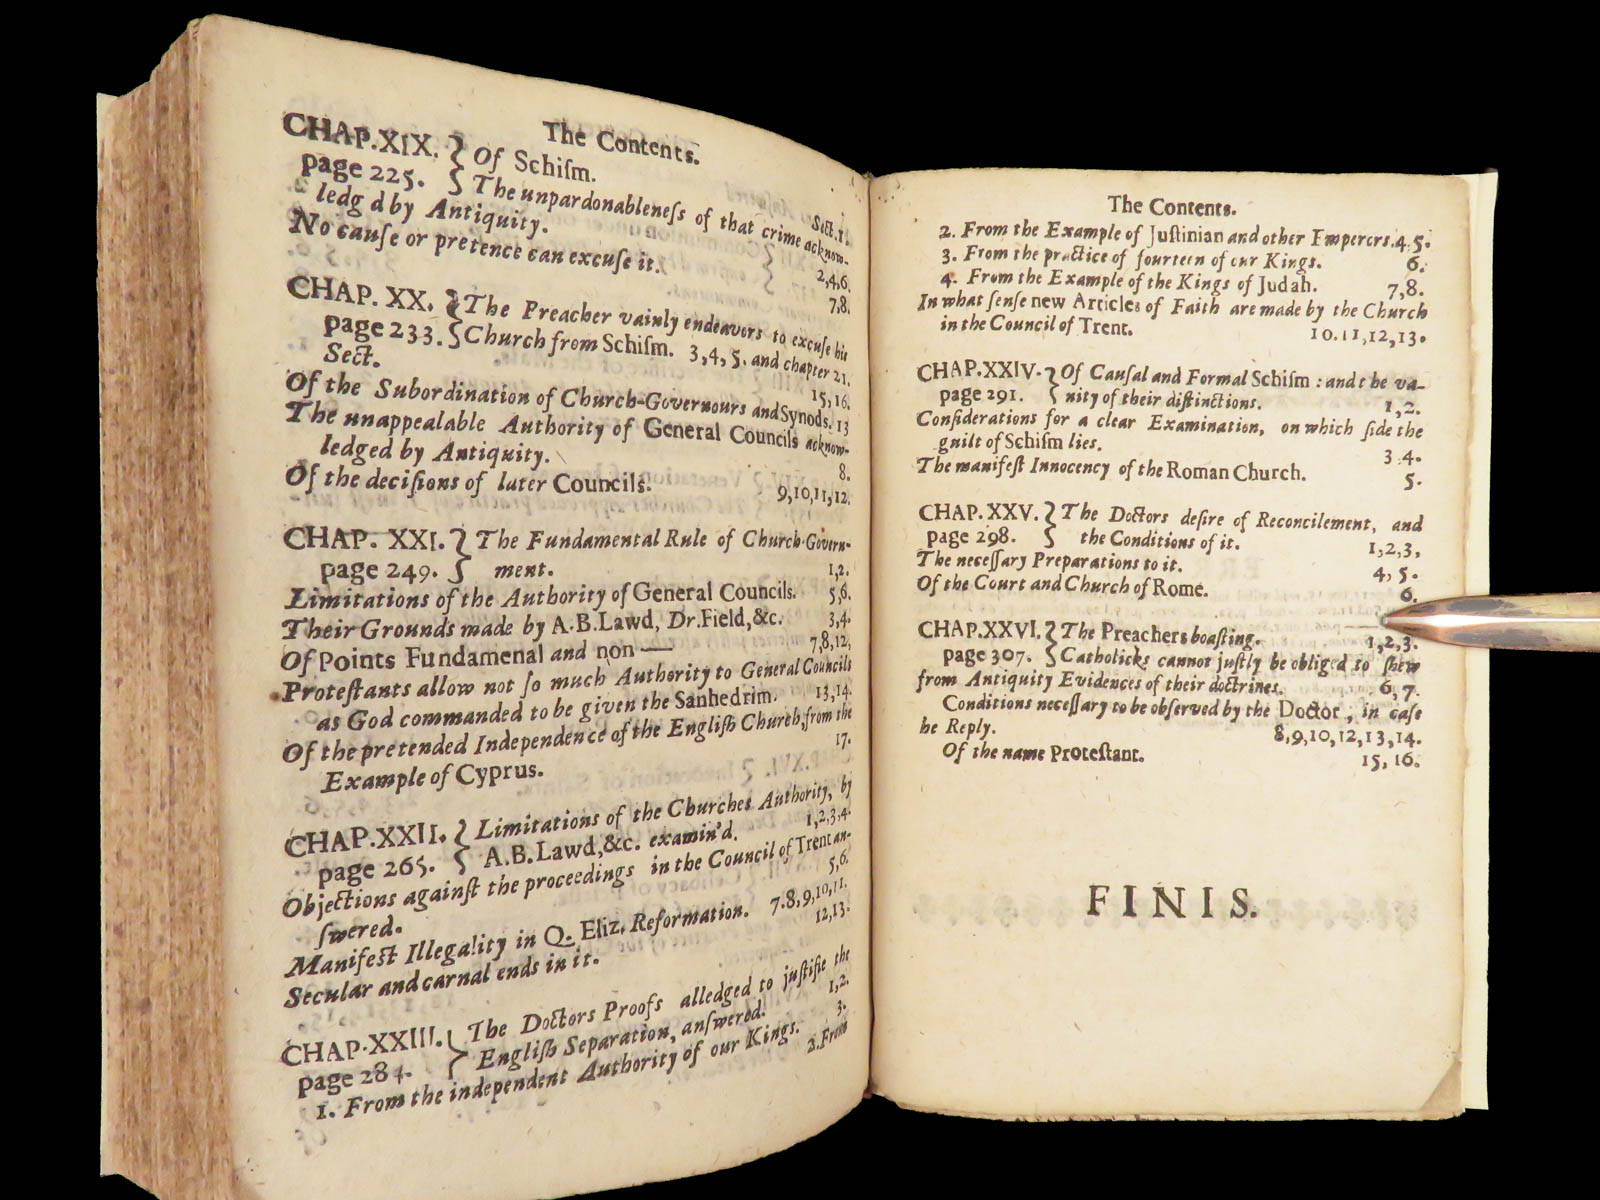 The Contents.
CHAP.XIX. } Of Schiſm. Sect.1.
page 225. } The unpardonableneſs of that crime acknow-
ledg d by Antiquity. 2,4,6.
No cauſe or pretence can excuſe it. 7,8.
CHAP. XX. } The Preacher vainly endeavors to excuſe his
page 233. } Church from Schiſm. 3,4,5. and chapter 21.
Sect. 15,16.
Of the Subordination of Church-Governours and Synods. 13
The unappealable Authority of General Councils acknow-
ledged by Antiquity. 8.
Of the deciſions of later Councils. 9,10,11,12.
CHAP. XXI. } The Fundamental Rule of Church-Govern-
page 249. } ment. 1,2.
Limitations of the Authority of General Councils. 5,6.
Their Grounds made by A.B.Lawd, Dr.Field,&c. 3,4.
Of Points Fundamenal and non — 7,8,12,
Proteſtants allow not ſo much Authority to General Councils
as God commanded to be given the Sanhedrim. 13,14.
Of the pretended Independence of the Engliſh Church,from the
Example of Cyprus. 17.
CHAP.XXII. } Limitations of the Churches Authority, by
page 265. } A.B.Lawd,&c. examin'd. 1,2,3,4.
Objections againſt the proceedings in the Council of Trent an-
ſwered. 5,6.
Manifeſt Illegality in Q. Eliz. Reformation. 7.8,9,10,11.
Secular and carnal ends in it. 12,13.
CHAP.XXIII. } The Doctors Proofs alledged to juſtifie the
page 284. } Engliſh Separation, anſwered. 1,2.
1. From the independent Authority of our Kings. 3.
2.From
The Contents.
2. From the Example of Juſtinian and other Emperors.4.5.
3. From the practice of fourteen of our Kings. 6.
4. From the Example of the Kings of Judah. 7,8.
In what ſenſe new Articles of Faith are made by the Church
in the Council of Trent. 10.11,12,13.
CHAP.XXIV. } Of Cauſal and Formal Schiſm : and the va-
page 291. } nity of their diſtinctions. 1,2.
Conſiderations for a clear Examination, on which ſide the
guilt of Schiſm lies. 3.4.
The manifeſt Innocency of the Roman Church. 5.
CHAP. XXV. } The Doctors deſire of Reconcilement, and
page 298. } the Conditions of it. 1,2,3,
The neceſſary Preparations to it. 4,5.
Of the Court and Church of Rome. 6.
CHAP.XXVI. } The Preachers boaſting. 1,2,3.
page 307. } Catholicks cannot juſtly be obliged to ſhew
from Antiquity Evidences of their doctrines. 6,7.
Conditions neceſſary to be obſerved by the Doctor, in caſe
he Reply. 8,9,10,12,13,14.
Of the name Proteſtant. 15,16.
FINIS.